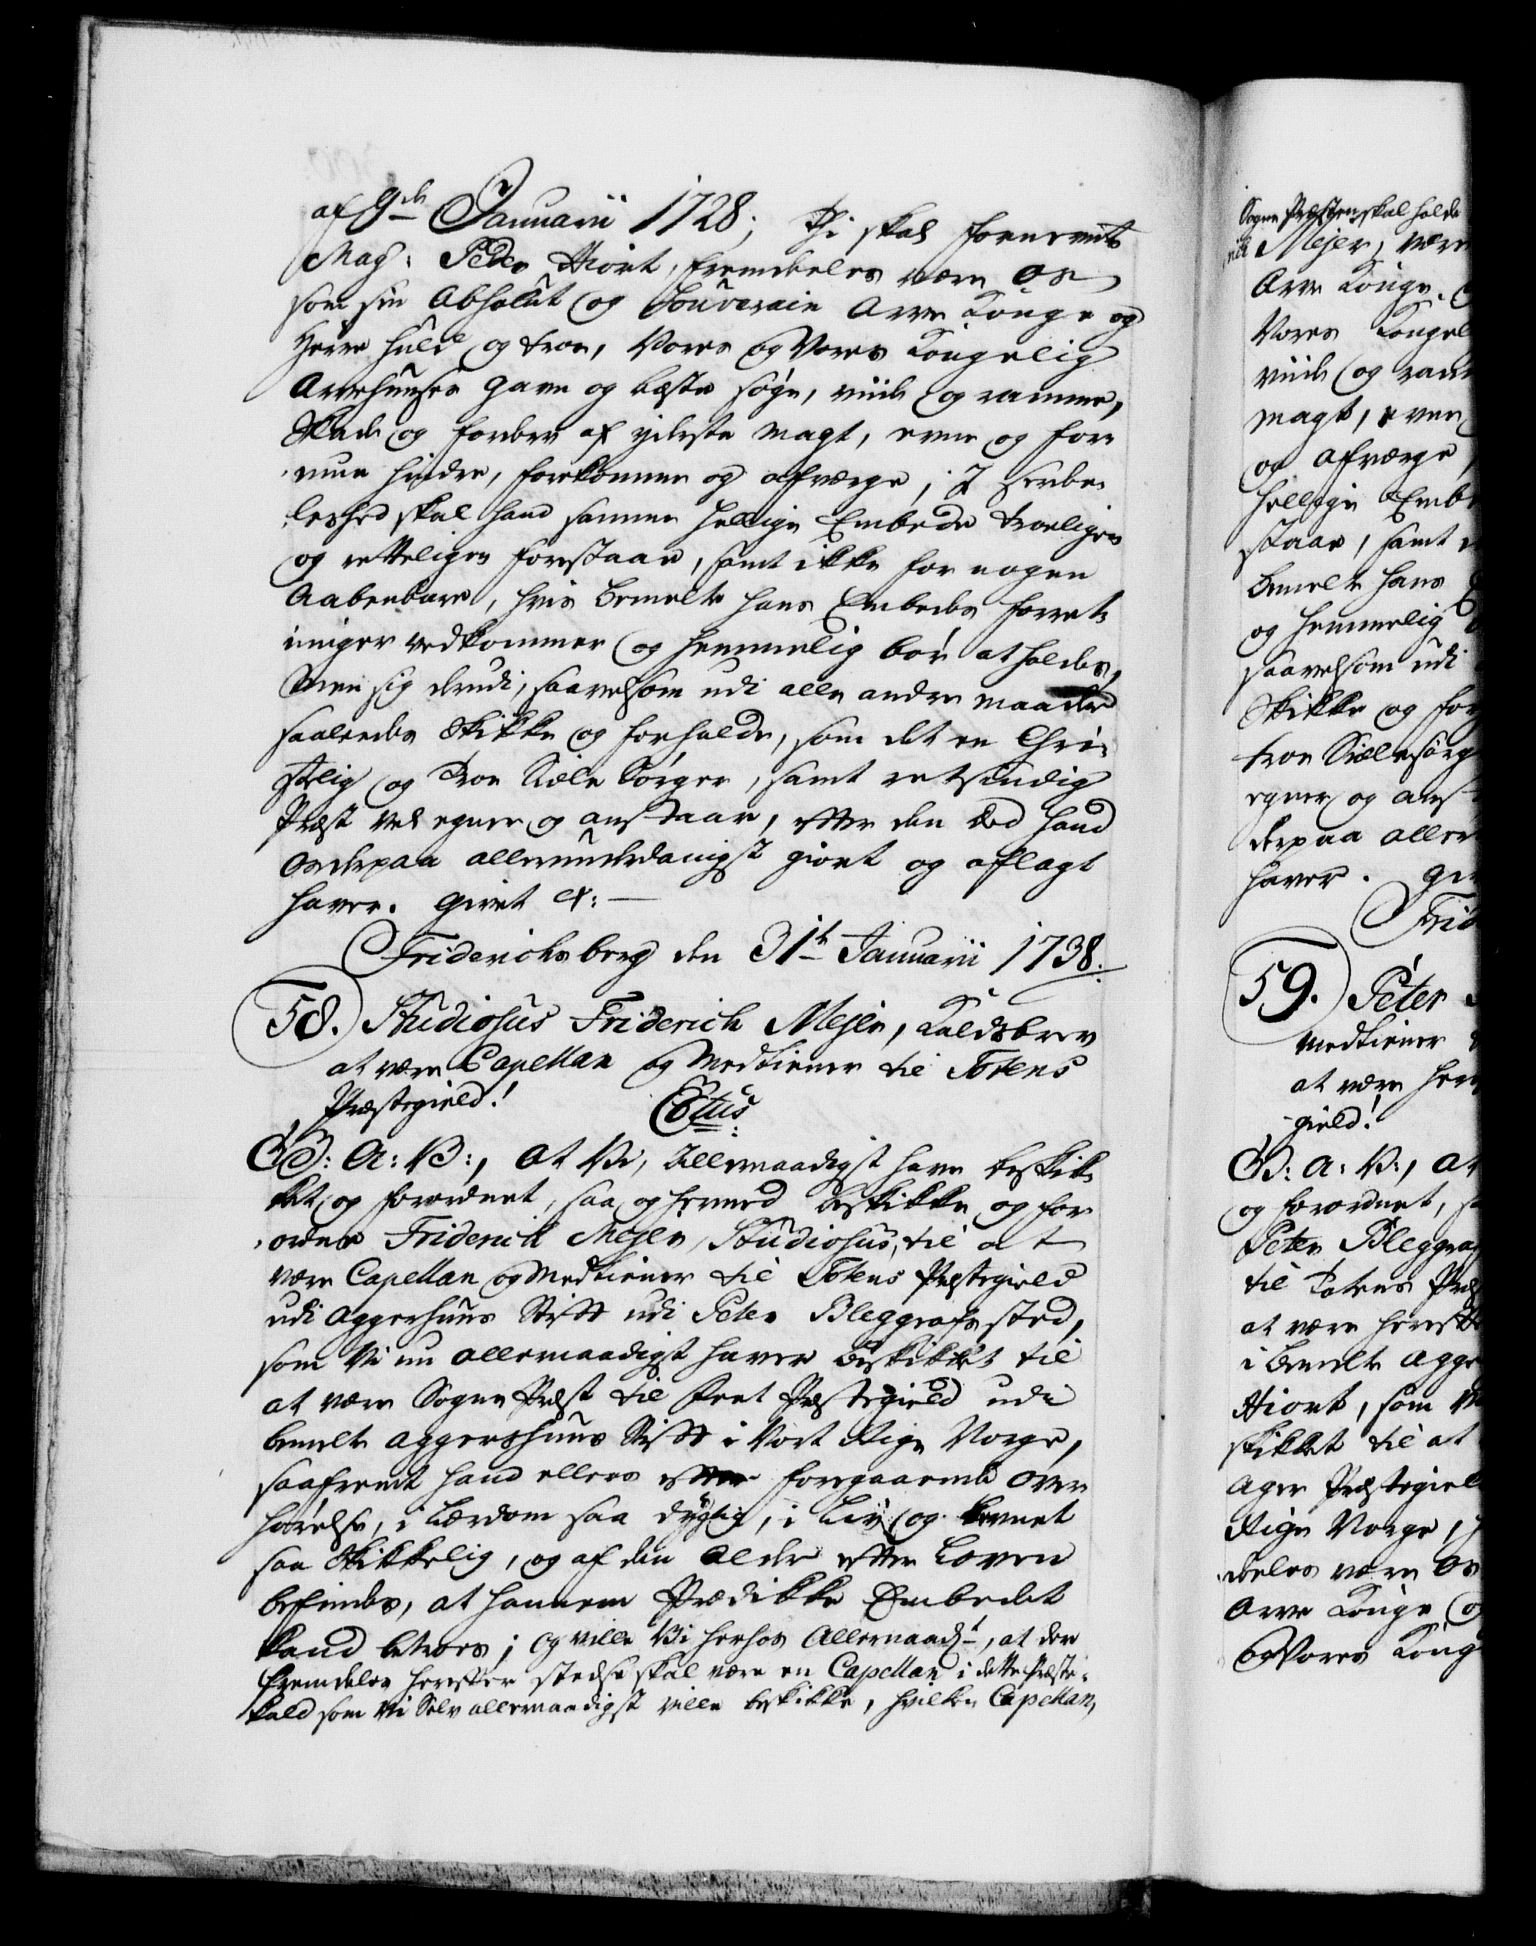 af 9de Januarii 1728; Thi skal fornevnte
Mag: Peder Hiort, fremdeles være Os
som sin Absolut og Souverain Arve Konge og
Herre huld og troe, Vores og Vores Kongelig
Arvehuuses gavn og beste søge, viide og ramme,
Skade og forderv af yderste magt, evne og for-
mue hindre, forekomme og afværge; I særde-
leshed skal hand samme hellige Embede troeligen
og retteligen forestaae, samt ikke for nogen
Aabenbare, hvis bemelte hans Embeds forret-
ninger vedkommer og hemmelig bør at holdes,
Men sig derudi, saavelsom udi alle andre maader
saaledes skikke og forholde, som det en Chri-
stelig og Troe Siæle Sørger, samt retsindig
Præst vel egner og anstaar, efter den Eed hand
Os derpaa allerunderdanigst giort og aflagt
haver. Givet &c: —
Friderichsberg den 31te Januarii 1738.
58. Studiosus Friderich Mejer, Kaldsbrev
at være Capellan og Medtiener til Totens
Præstegield!
C5tus
G: A: V:, At Vi, Allernaadigst have beskik-
ket og forordnet, saa og hermed beskikke og for-
ordne Friderich Mejer, Studiosus, til at
være Capellan og Medtiener til Totens Præstegield
udi Aggershuus Stift udi Peter Bleggrafs sted,
som Vi nu allernaadigst haver beskikket til
at være Sogne Præst til Præstegield udi
bemelte Aggershuus Stift i Vort Rige Norge,
saafremt hand ellers efter foregaaende Over
hørelse, i Lærdom saa dygtig, i Liv og Levnet
saa skikkelig, og af den Alder efter Loven
befindes, at hannem Prædikke Embedet
kand betroes; Og ville Vi herhos Allernaadst, at der
fremdeles herefter stedse skal være en Capellan i dette Præste-
kald som Vi Selv allernaadigst ville beskikke, hvilken Capellan,
Sogne Præsten skal holde
Mejer, være
Arve Konge
Vores Kongel
viide og ram
magt, evne
og afværge,
hellige Emb
staae, samt
bemelte hans
og hemmelig
saavelsom udi
skikke og for
troe Siælesørg
egner og anst
derpaa aller
haver. Gi
Frid
59. Peter
Medtiener
at være her
gield!
G: A: V:, At
og forordnet, sa
Peter Bleggraf
til Totens Præ
at være herefte
i bemelte Agge
Hiort, som V
skikket til at
Ager Præstegiel
Rige Norge,
deles være Os
Arve Konge og
og Vores Kong